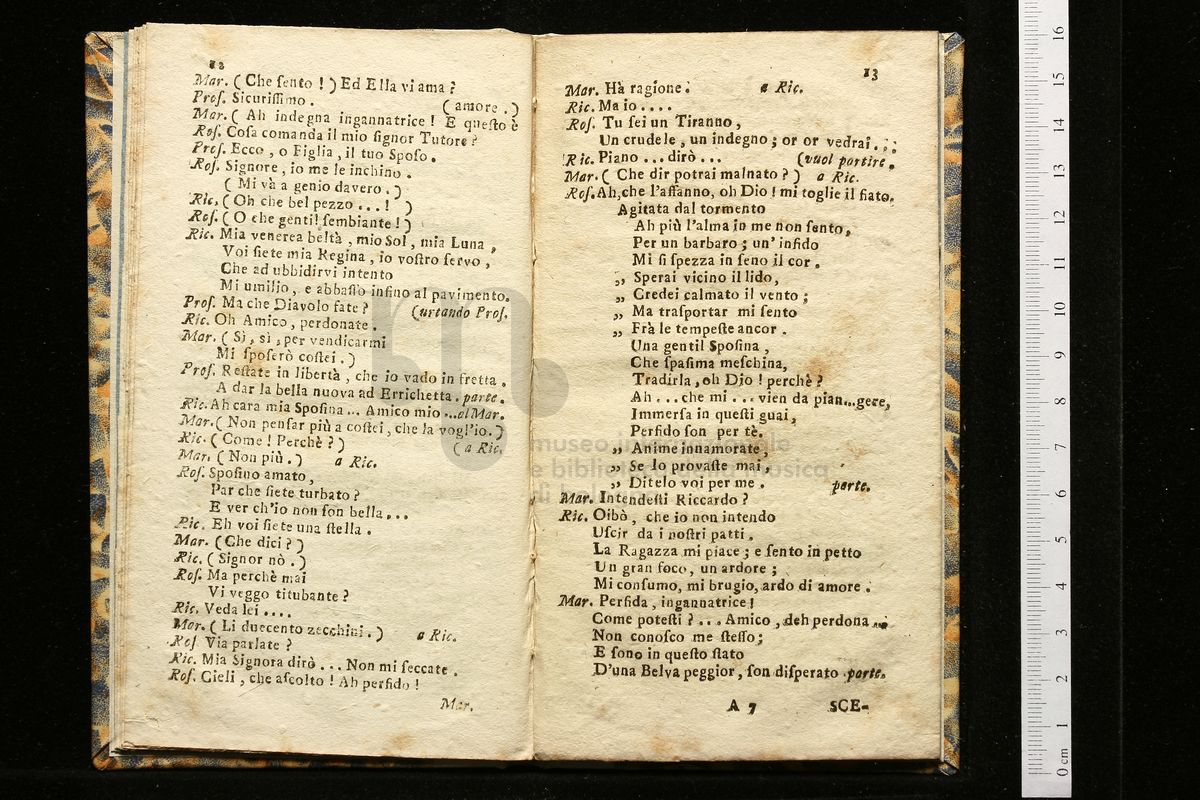 12
Mar. ( Che ſento ! ) Ed Ella vi ama ?
Proſ. Sicuriſſimo . ( amore . )
Mar. ( Ah indegna ingannatrice ! E queſto è
Roſ. Coſa comanda il mio ſignor Tutore ?
Proſ. Ecco , o Figlia , il tuo Spoſo .
Roſ. Signore , io me le inchino .
( Mi và a genio davero . )
Ric. ( Oh che bel pezzo ... ! )
Roſ. ( O che gentil ſembiante ! )
Ric. Mia venerea beltà , mio Sol , mia Luna ,
Voi ſiete mia Regina , io voſtro ſervo ,
Che ad ubbidirvi intento
Mi umilio , e abbaſſo infino al pavimento.
Proſ. Ma che Diavolo fate ? (urtando Proſ.
Ric. Oh Amico , perdonate .
Mar. ( Sì , sì , per vendicarmi
Mi ſpoſerò coſtei . )
Proſ. Reſtate in libertà , che io vado in fretta .
A dar la bella nuova ad Errichetta . parte .
Ric. Ah cara mia Spoſina ... Amico mio ... al Mar.
Mar. ( Non penſar più a coſtei , che la vogl'io. )
Ric. ( Come ! Perchè ? ) ( a Ric.
Mar. ( Non più . ) a Ric.
Roſ. Spoſino amato ,
Par che ſiete turbato ?
E ver ch'io non ſon bella ...
Ric. Eh voi ſiete una ſtella .
Mar. ( Che dici ? )
Ric. ( Signor nò . )
Roſ. Ma perchè mai
Vi veggo titubante ?
Ric. Veda lei ....
Mar. ( Li duecento zecchini . ) a Ric.
Roſ Via parlate ?
Ric. Mia Signora dirò ... Non mi ſeccate .
Roſ. Cieli , che aſcolto ! Ah perfido !
Mar.
13
Mar. Hà ragione . a Ric.
Ric. Ma io ....
Roſ. Tu ſei un Tiranno ,
Un crudele , un indegno ; or or vedrai . . ;
Ric. Piano ... dirò ... (vuol partire .
Mar. ( Che dir potrai malnato ? ) a Ric.
Roſ. Ah, che l'affanno, oh Dio ! mi toglie il fiato.
Agitata dal tormento
Ah più l'alma in me non ſento ,
Per un barbaro ; un' infido
Mi ſi ſpezza in ſeno il cor .
„ Sperai vicino il lido ,
„ Credei calmato il vento ;
„ Ma traſportar mi ſento
„ Frà le tempeſte ancor .
Una gentil Spoſina ,
Che ſpaſima meſchina,
Tradirla , oh Dio ! perchè ?
Ah ... che mi ... vien da pian...gere,
Immerſa in queſti guai ,
Perfido ſon per tè.
„ Anime innamorate ,
„ Se lo provaſte mai ,
„ Ditelo voi per me . parte.
Mar. Intendeſti Riccardo ?
Ric. Oibò , che io non intendo
Uſcir da i noſtri patti .
La Ragazza mi piace ; e ſento in petto
Un gran foco , un ardore ;
Mi conſumo, mi brugio, ardo di amore .
Mar. Perfida , ingannatrice !
Come poteſti ? ... Amico , deh perdona ...
Non conoſco me ſteſſo ;
E ſono in queſto ſtato
D'una Belva peggior , ſon diſperato . parte.
A 7 SCE-
museo internazionale
e biblioteca della musica
0 cm 1 2 3 4 5 6 7 8 9 10 11 12 13 14 15 16